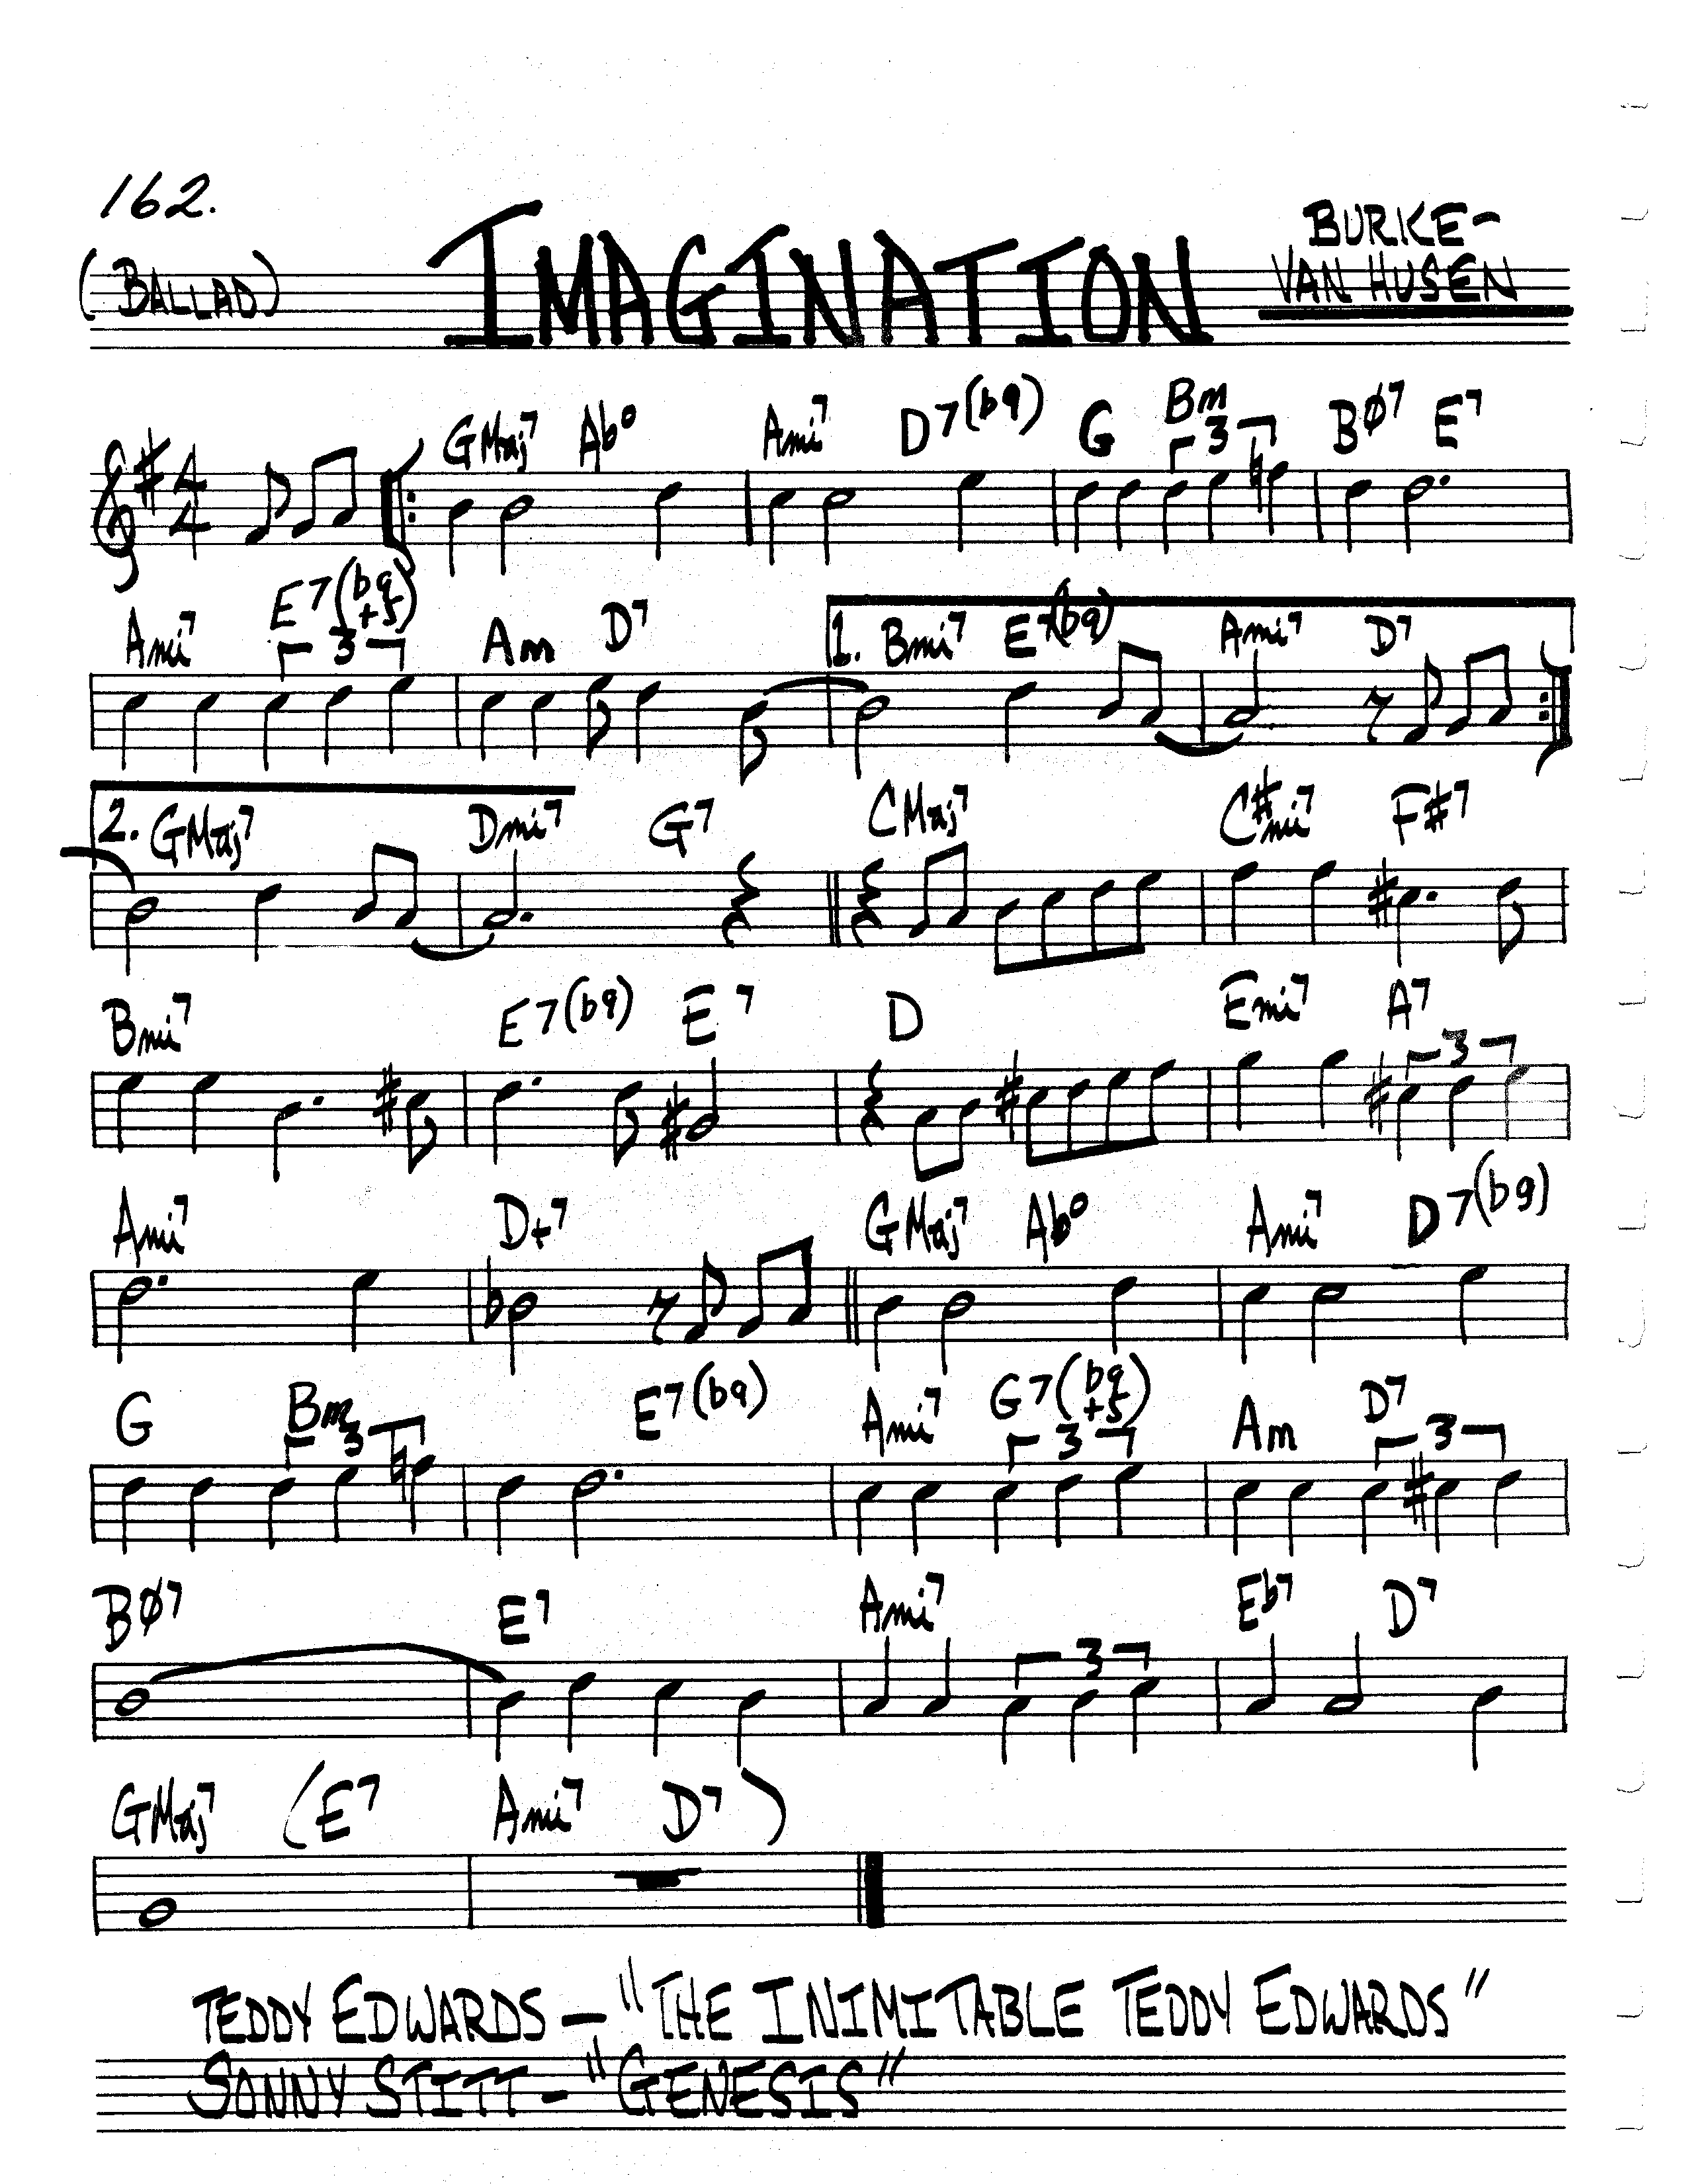 162.
(BALLAD) IMAGINATION BURKE-
VAN HUSEN
GMaj7 Abo Ami7 D7(b9) G Bm BØ7 E7
3
4
4
Ami7 E7(b9 +5) Am D7 1. Bmi7 E7(b9) Ami7 D7
3
2. GMaj7 Dmi7 G7 CMaj7 C#mi7 F#7
Bmi7 E7(b9) E7 D Emi7 A7
3
Ami7 D+7 GMaj7 Abo Ami7 D7(b9)
G Bm E7(b9) Ami7 G7(b9 +5) Am D7
3 3 3
BØ7 E7 Ami7 Eb7 D7
3
GMaj7 (E7 Ami7 D7)
TEDDY EDWARDS - "THE INIMITABLE TEDDY EDWARDS"
SONNY STITT - "GENESIS"